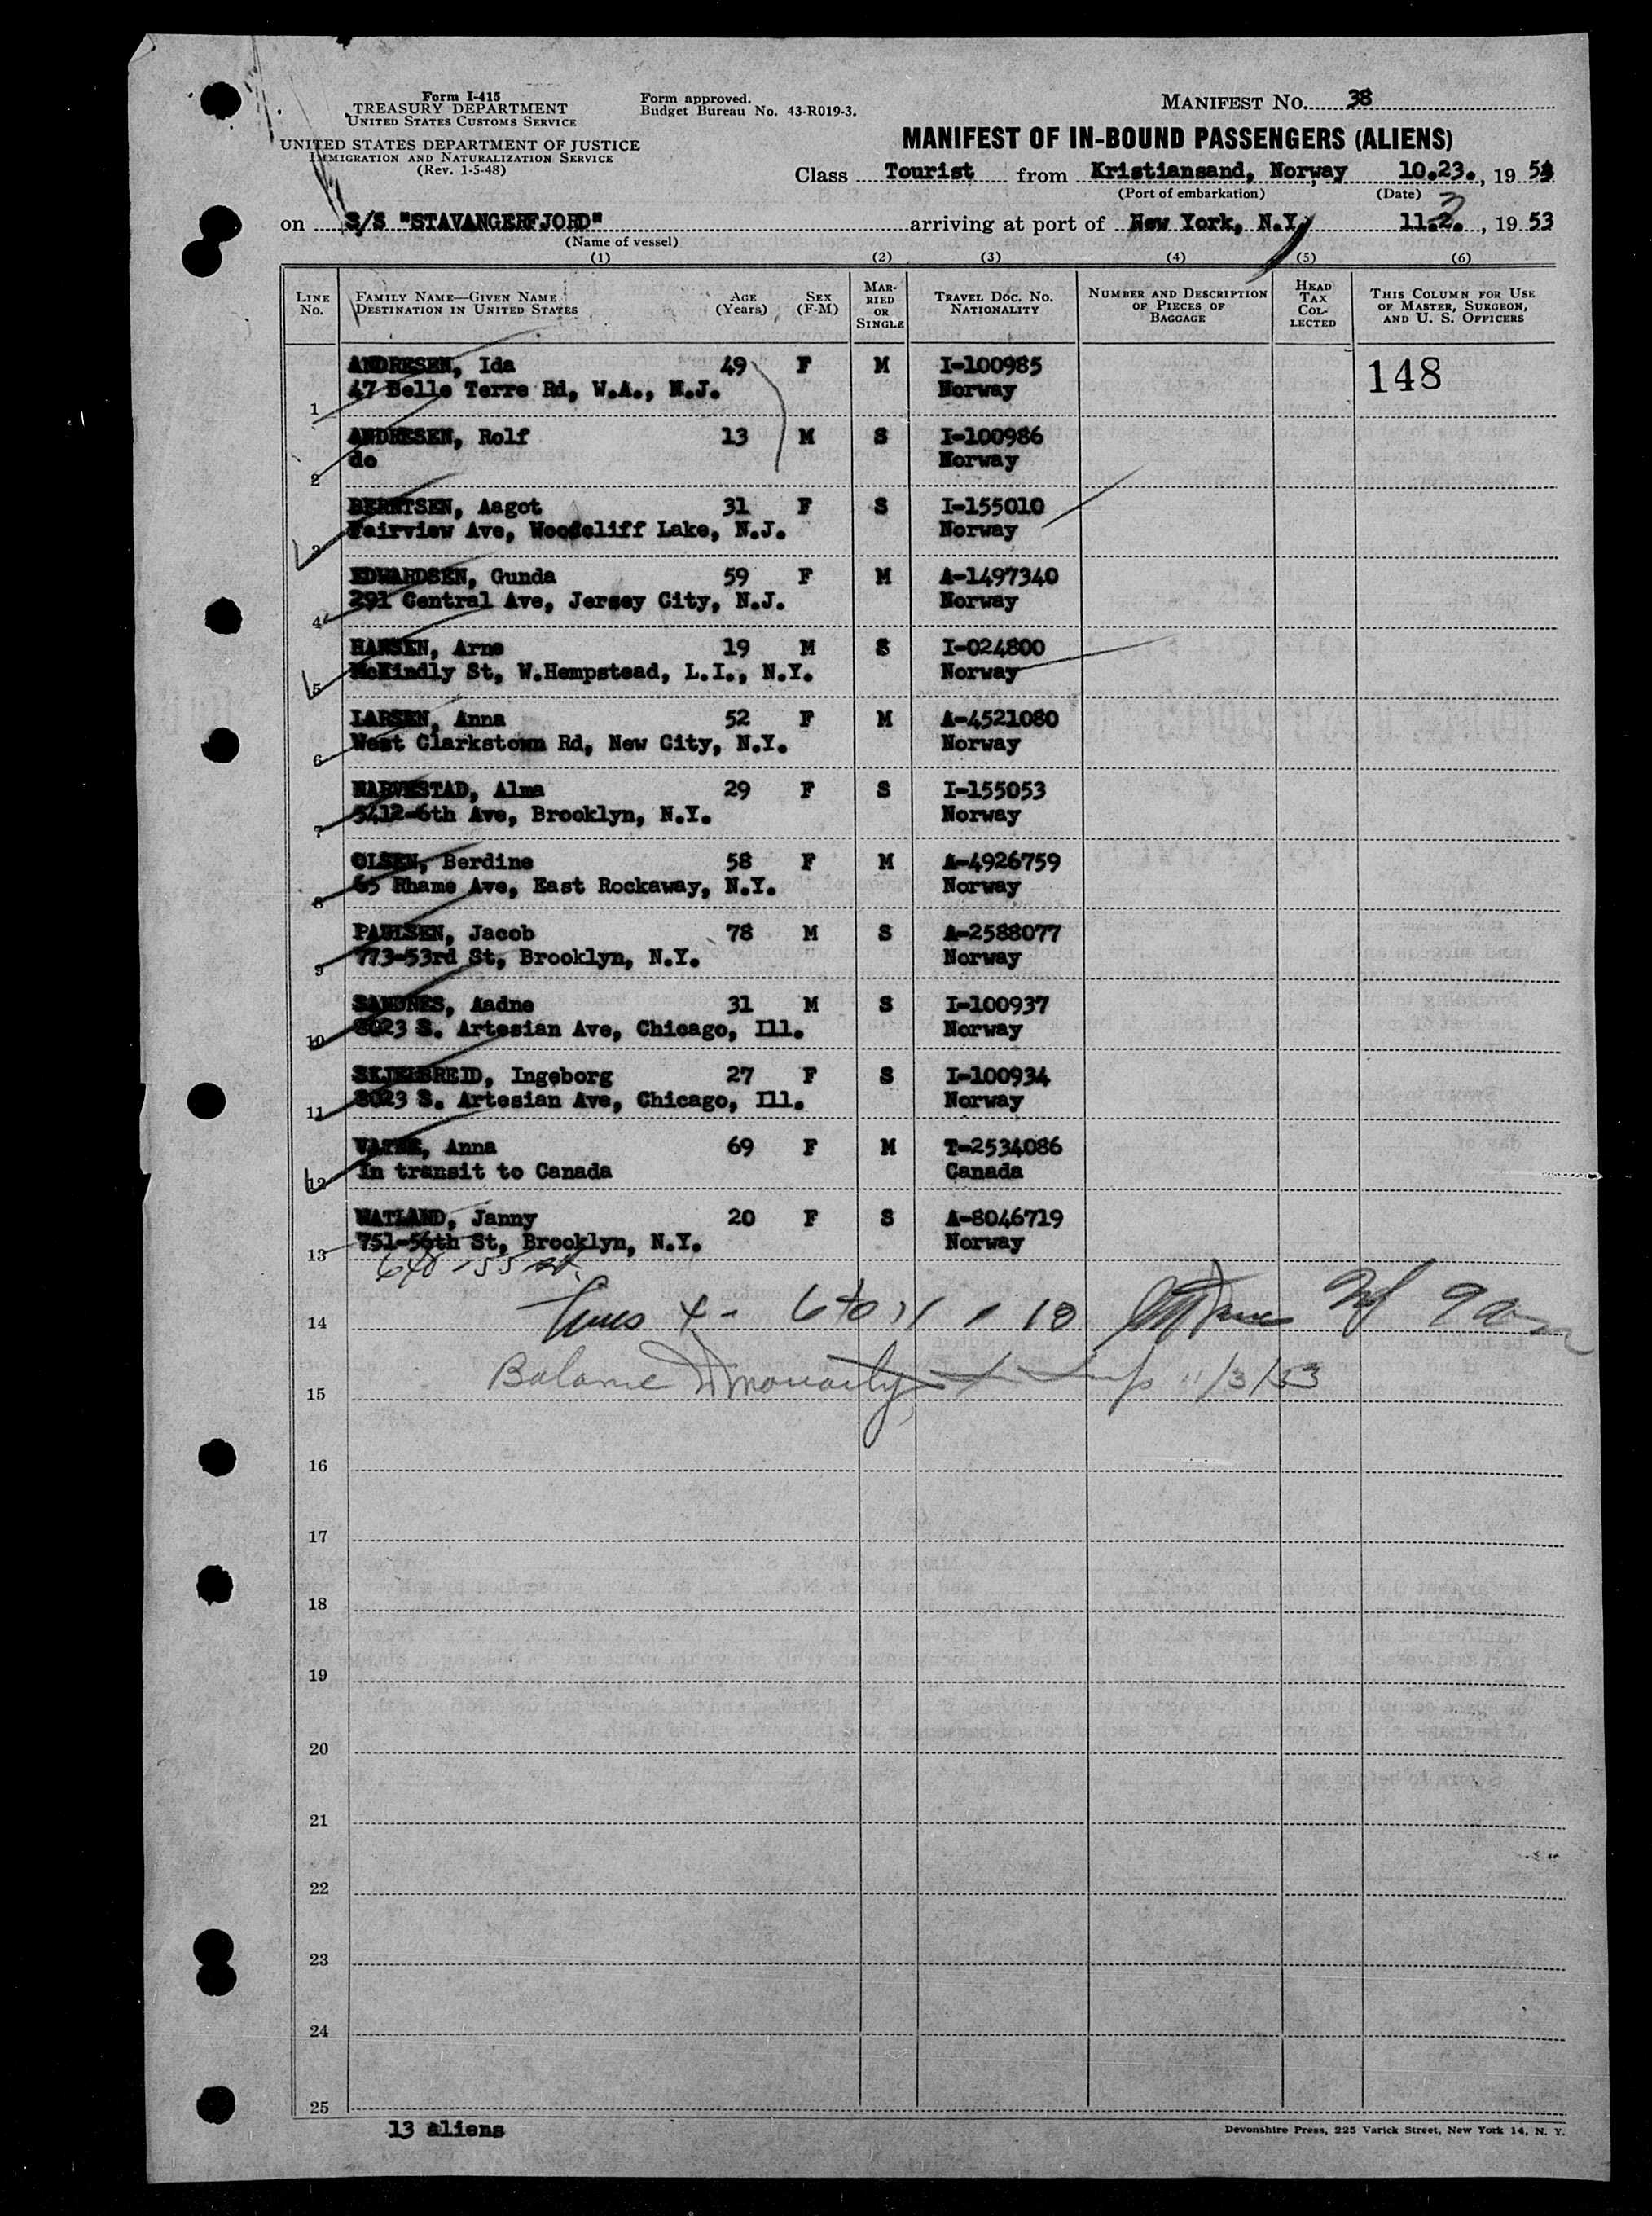 Form I-415
TREASURY DEPARTMENT
UNITED STATES CUSTOMS SERVICE
UNITED STATES DEPARTMENT OF JUSTICE
IMMIGRATION AND NATURALIZATION SERVICE
(Rev. 1-5-48)
Form approved.
Budget Bureau No. 43-R019-3.
MANIFEST NO. 38
MANIFEST OF IN-BOUND PASSENGERS (ALIENS)
Class Tourist from Kristiansand, Norway 10.23., 19 53
(Port of embarkation) (Date)
on S/S "STAVANGERFJORD" arriving at port of New York, N.Y. 11.3., 19 53
(Name of vessel)
(1) (2) (3) (4) (5) (6)
LINE NO. FAMILY NAME—GIVEN NAME DESTINATION IN UNITED STATES AGE (Years) SEX (F-M) MARRIED OR SINGLE TRAVEL DOC. NO. NATIONALITY NUMBER AND DESCRIPTION OF PIECES OF BAGGAGE HEAD TAX COLLECTED THIS COLUMN FOR USE OF MASTER, SURGEON, AND U. S. OFFICERS
ANDRESEN, Ida 49 F M I-100985 148
1 47 Belle Terre Rd, W.A., N.J. Norway
ANDRESEN, Rolf 13 M S I-100986
2 do Norway
BERNTSEN, Aagot 31 F S I-155010
3 Fairview Ave, Woodcliff Lake, N.J. Norway
EDWARDSEN, Gunda 59 F M A-1497340
4 291 Central Ave, Jersey City, N.J. Norway
HANSEN, Arne 19 M S I-024800
5 McKindly St, W.Hempstead, L.I., N.Y. Norway
LARSEN, Anna 52 F M A-4521080
6 West Clarkstown Rd, New City, N.Y. Norway
NARVESTAD, Alma 29 F S I-155053
7 5412-6th Ave, Brooklyn, N.Y. Norway
OLSEN, Berdine 58 F M A-4926759
8 65 Rhame Ave, East Rockaway, N.Y. Norway
PAULSEN, Jacob 78 M S A-2588077
9 773-53rd St, Brooklyn, N.Y. Norway
SANDNES, Aadne 31 M S I-100937
10 8023 S. Artesian Ave, Chicago, Ill. Norway
SKJELBREID, Ingeborg 27 F S I-100934
11 8023 S. Artesian Ave, Chicago, Ill. Norway
Anna 69 F M T-2534086
12 In transit to Canada Canada
WATLAND, Janny 20 F S A-8046719
13 751-56th St, Brooklyn, N.Y. Norway
640 - 55 st.
14 Lines 4 - 6 to 11
15 Balance 11/3/53
16
17
18
19
20
21
22
23
24
25
13 aliens
Devonshire Press, 225 Varick Street, New York 14, N. Y.